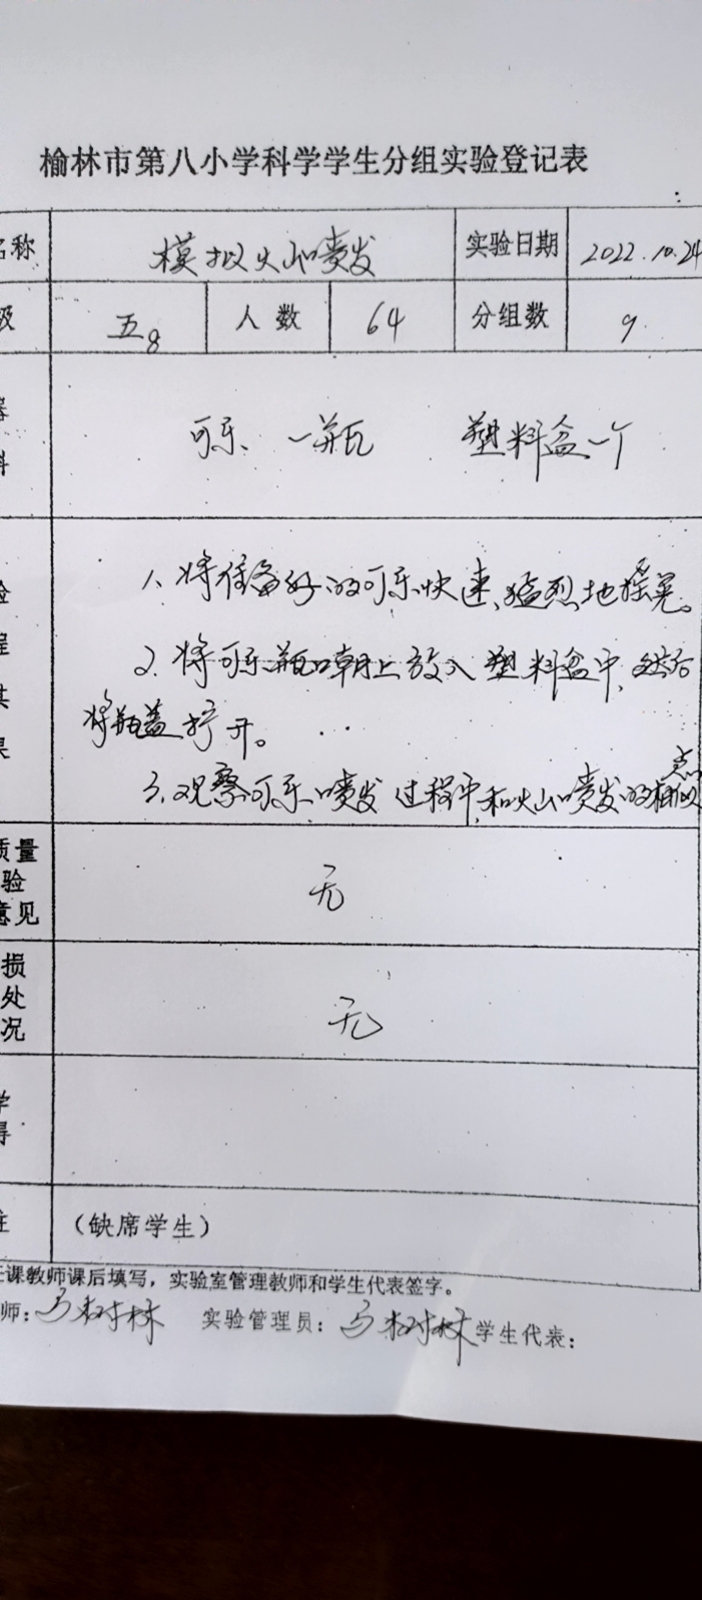 榆林市第八小学科学学生分组实验登记表
名称 模拟火山喷发 实验日期 2022.10.24
级 五8 人数 64 分组数 9
器
料
可乐一瓶 塑料盒一个
验
程
其
果
1、将准备好的可乐快速、猛烈地摇晃。
2、将可乐瓶口朝上放入塑料盒中,然后
将瓶盖拧开。
3、观察可乐喷发过程中和火山喷发的相似点
质量
验
意见
无
损
处
况
无
学
得
注 (缺席学生)
任课教师课后填写,实验室管理教师和学生代表签字。
师:马树林 实验管理员:马树林 学生代表: